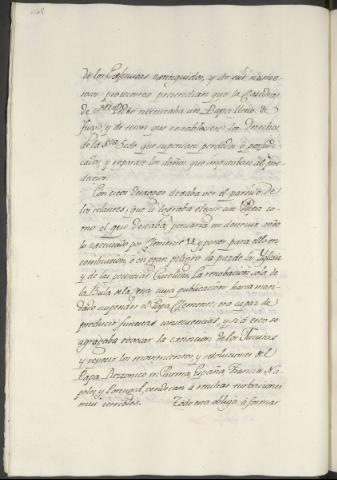 de los Jesuitas extinguidos, y de sus
protectores pretendian que la Catedra
de S.n Pedro necesitaba un Papa lleno de
fuego, y de teson que restableciese los derechos
de la S.ta Sede que suponian perdidos o perjudi
cados, y reparase los daños que imputaban al pre
decesor.
Con estos deseos dexaba ver el partido de
los zelantes, que si lograba elegir un Papa co
mo el que deseaba, pensaria en destruir todo
lo executado por Clemente y poner para ello en
combustion, o en gran peligro la paz de la Yglesia
y de las potencias Catolicas. La renobacion sola de
la Bula cuya publicacion havia man
dado suspender el Papa Clemente, era capaz de
producir funestas consecuencias, y si a esto se
agregaba revocar la extincion de los Jesuitas
y repetir los movimientos, y resoluciones del
Papa Rezzonico en Parma, España, Francia Na
poles, y Portugal, vendrian a resultar turbaciones
mui terribles. Todo esto obligó a formar